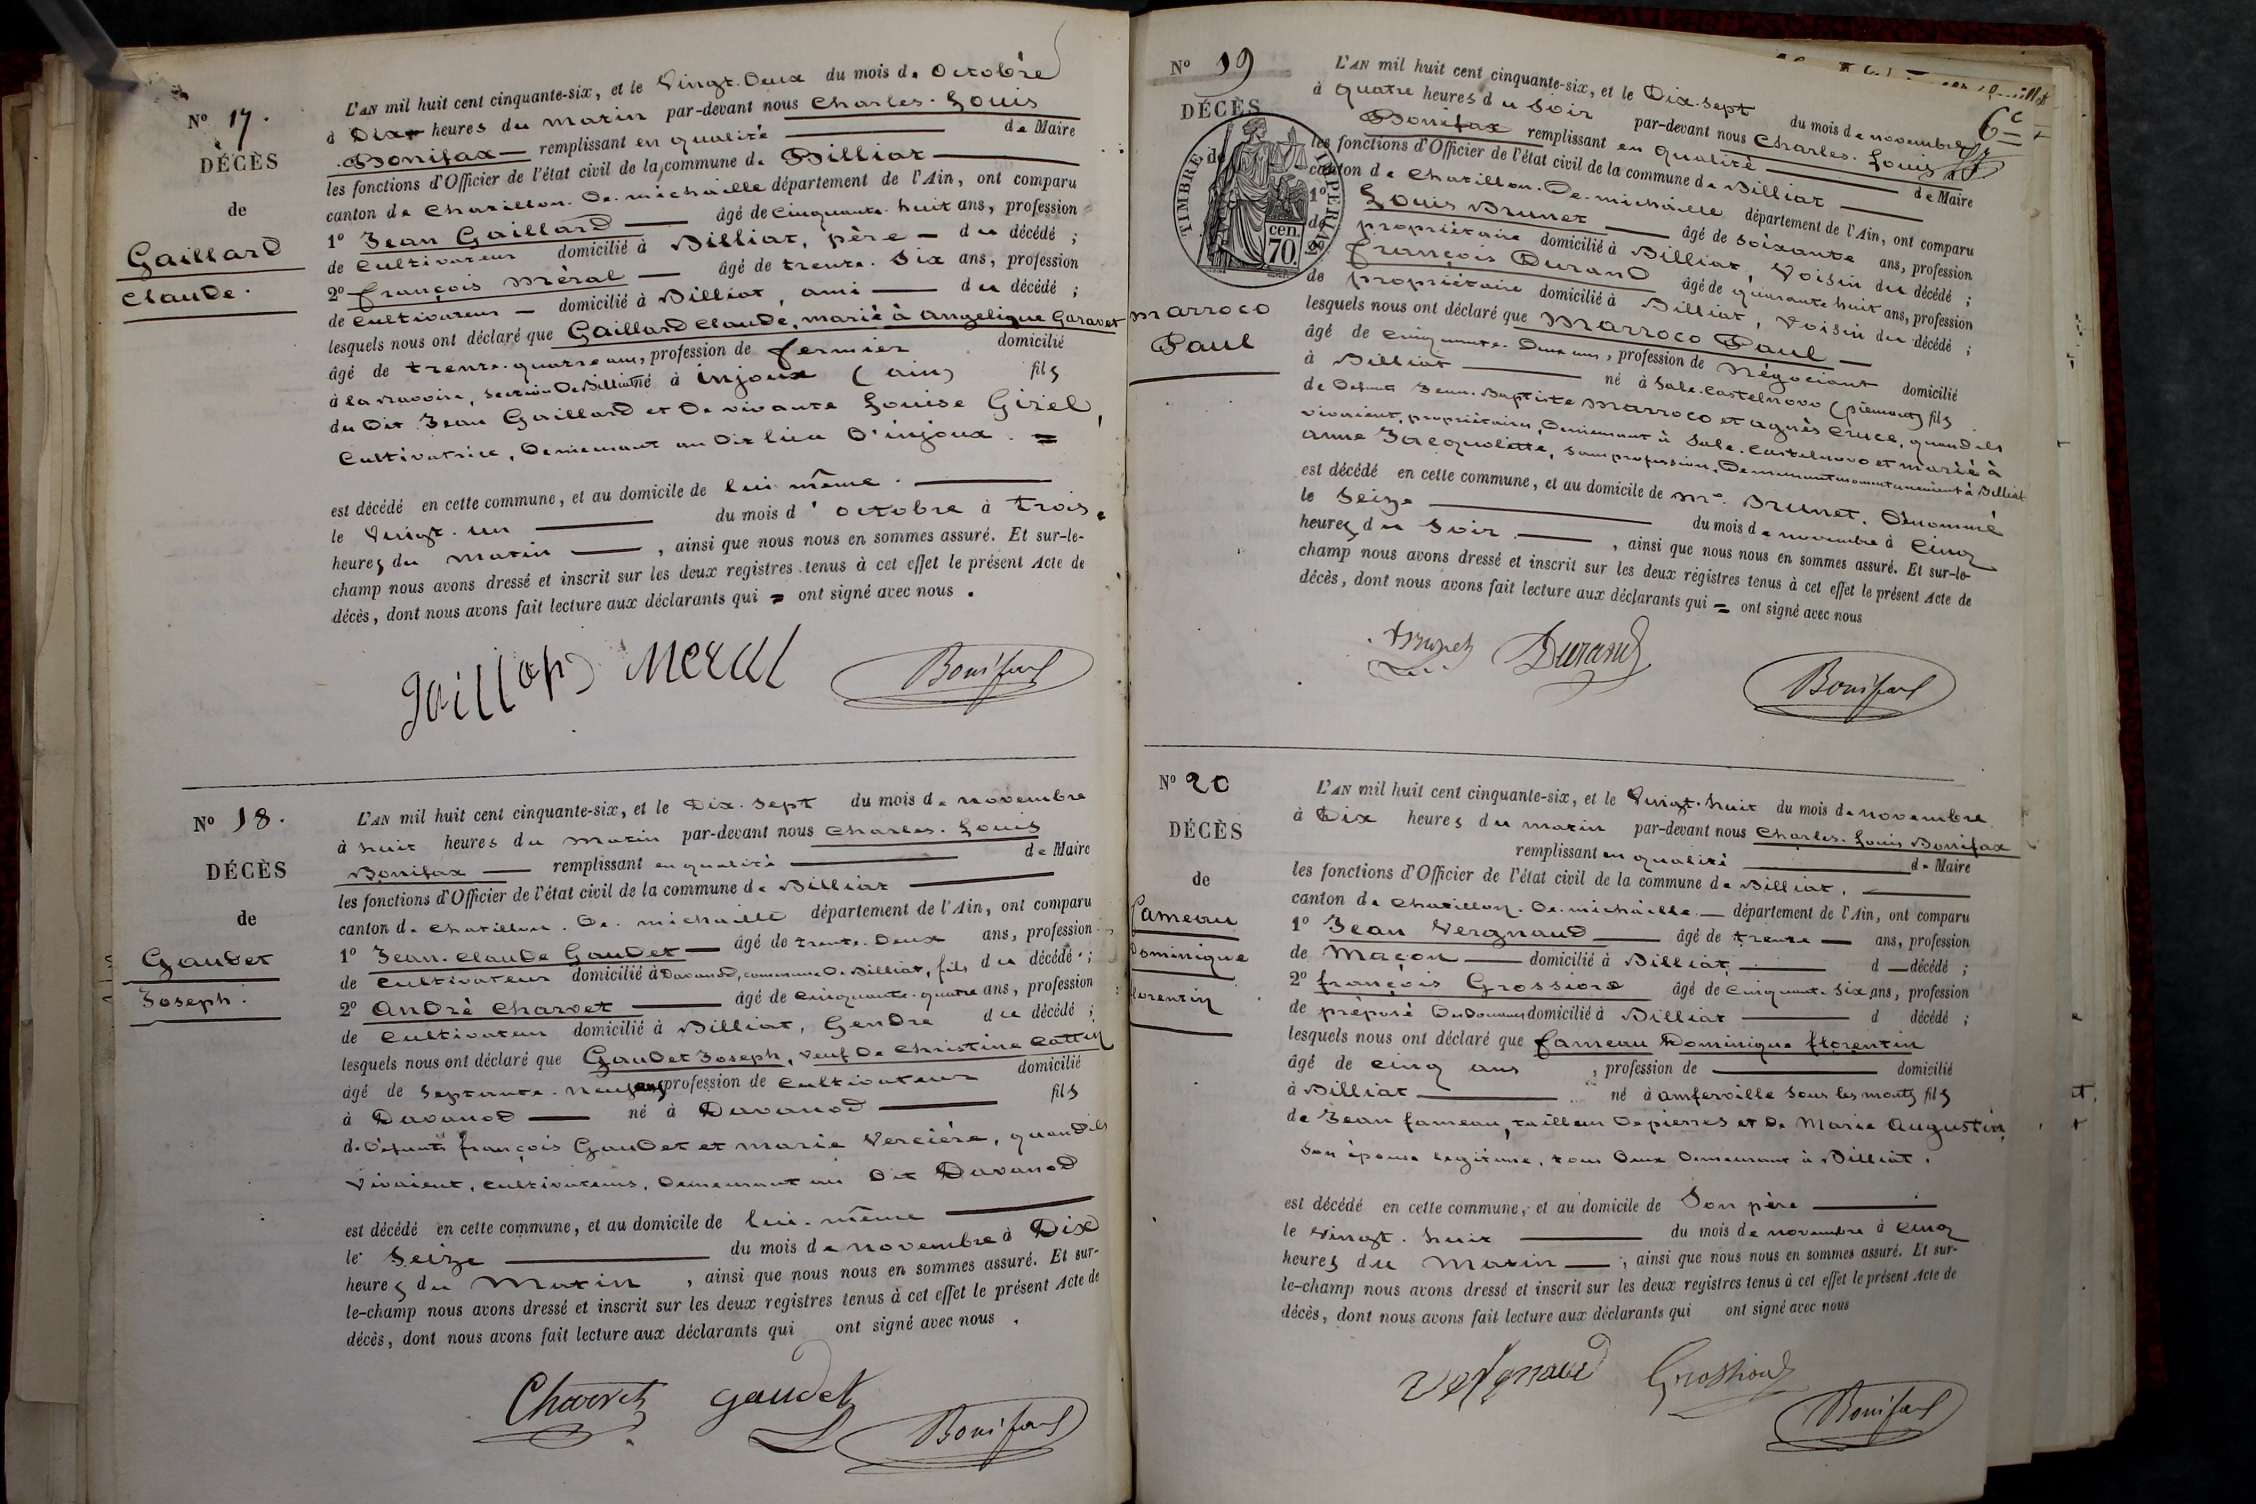 N° 17.
DÉCÈS
de
Gaillard
Claude.
L'AN mil huit cent cinquante-six, et le Vingt-Deux du mois de Octobre
à Dix heures du matin par-devant nous Charles-Louis
Bonifax remplissant en qualité de Maire
les fonctions d'Officier de l'état civil de la commune de Billiat
canton de Chatillon-De-michaille département de l'Ain, ont comparu
1° Jean Gaillard âgé de cinquante-huit ans, profession
de cultivateur domicilié à Billiat, père du décédé ;
2° françois méral âgé de trente-six ans, profession
de cultivateur domicilié à Billiat, ami du décédé ;
lesquels nous ont déclaré que Gaillard Claude, marié à angelique Garavet
âgé de trente-quatre ans, profession de fermier domicilié
à la navoire, section De Billiat né à injoux (ain) fils
du Dit Jean Gaillard et De vivante Louise Girel,
cultivatrice, Demeurant au Dit lieu D'injoux. =
est décédé en cette commune, et au domicile de lui même.
le Vingt-un du mois d'octobre à trois
heures du matin, ainsi que nous nous en sommes assuré. Et sur-le-
champ nous avons dressé et inscrit sur les deux registres tenus à cet effet le présent Acte de
décès, dont nous avons fait lecture aux déclarants qui = ont signé avec nous.
Gaillard Meral Bonifax
N° 18.
DÉCÈS
de
Gaudet
Joseph.
L'AN mil huit cent cinquante-six, et le Dix-sept du mois de novembre
à huit heures du matin par-devant nous Charles-Louis
Bonifax remplissant en qualité de Maire
les fonctions d'Officier de l'état civil de la commune de Billiat
canton de Chatillon-De-michaille département de l'Ain, ont comparu
1° Jean-Claude Gaudet âgé de trente-Deux ans, profession
de cultivateur domicilié à Davanod, commune De Billiat, fils du décédé ;
2° André Charvet âgé de cinquante-quatre ans, profession
de cultivateur domicilié à Billiat, Gendre du décédé ;
lesquels nous ont déclaré que Gaudet Joseph, veuf De Christine Cottin
âgé de septante-neuf ans, profession de cultivateur domicilié
à Davanod né à Davanod fils
de Défunts françois Gaudet et marie Vercière, quand ils
vivaient, cultivateurs, Demeurant au Dit Davanod
est décédé en cette commune, et au domicile de lui-même
le Seize du mois de novembre à Dix
heures du Matin, ainsi que nous nous en sommes assuré. Et sur-
le-champ nous avons dressé et inscrit sur les deux registres tenus à cet effet le présent Acte de
décès, dont nous avons fait lecture aux déclarants qui ont signé avec nous.
Charvet gaudet Bonifax
N° 19
DÉCÈS
de
TIMBRE IMPERIAL
cen.
70.
marroco
Paul
6c
L'AN mil huit cent cinquante-six, et le Dix-sept du mois de novembre
à quatre heures du Soir par-devant nous Charles-Louis
Bonifax remplissant en qualité de Maire
les fonctions d'Officier de l'état civil de la commune de Billiat
canton de Chatillon-De-michaille département de l'Ain, ont comparu
1° Louis Brunet âgé de soixante ans, profession
de propriétaire domicilié à Billiat, Voisin du décédé ;
2° françois Durand âgé de quarante huit ans, profession
de propriétaire domicilié à Billiat, Voisin du décédé ;
lesquels nous ont déclaré que Marroco Paul
âgé de cinquante-Deux ans, profession de Négociant domicilié
à Billiat né à Sale-Castelnovo (piémont) fils
de Défunt Jean-Baptiste Marroco et agnès Cruce, quand ils
vivaient, propriétaires, Demeurant à Sale-Castelnovo et marié à
anne Jacquolette, sans profession, Demeurant momentanément à Billiat
est décédé en cette commune, et au domicile de mr. Brunet, Dénommé
le Seize du mois de novembre à Cinq
heures du Soir, ainsi que nous nous en sommes assuré. Et sur-le-
champ nous avons dressé et inscrit sur les deux régistres tenus à cet effet le présent Acte de
décès, dont nous avons fait lecture aux déclarants qui = ont signé avec nous
Brunet Durand Bonifax
N° 20
DÉCÈS
de
fameau
Dominique
florentin
L'AN mil huit cent cinquante-six, et le Vingt-huit du mois de novembre
à Dix heures du matin par-devant nous Charles-Louis Bonifax
remplissant en qualité de Maire
les fonctions d'Officier de l'état civil de la commune de Billiat,
canton de Chatillon-De-michaille département de l'Ain, ont comparu
1° Jean Vergnaud âgé de trente ans, profession
de Maçon domicilié à Billiat, d décédé ;
2° françois Grossiord âgé de cinquante-six ans, profession
de préposé Des Douanes domicilié à Billiat d décédé ;
lesquels nous ont déclaré que fameau Dominique florentin
âgé de cinq ans, profession de domicilié
à Billiat né à amferville sous les monts fils
de Jean fameau, tailleur De pierres et De Marie Augustin,
Son épouse légitime, tous Deux Demeurant à Billiat.
est décédé en cette commune, et au domicile de Son père
le Vingt-huit du mois de novembre à cinq
heures du Matin, ainsi que nous nous en sommes assuré. Et sur-
le-champ nous avons dressé et inscrit sur les deux registres tenus à cet effet le présent Acte de
décès, dont nous avons fait lecture aux déclarants qui ont signé avec nous
Vergnaud Grossiord Bonifax